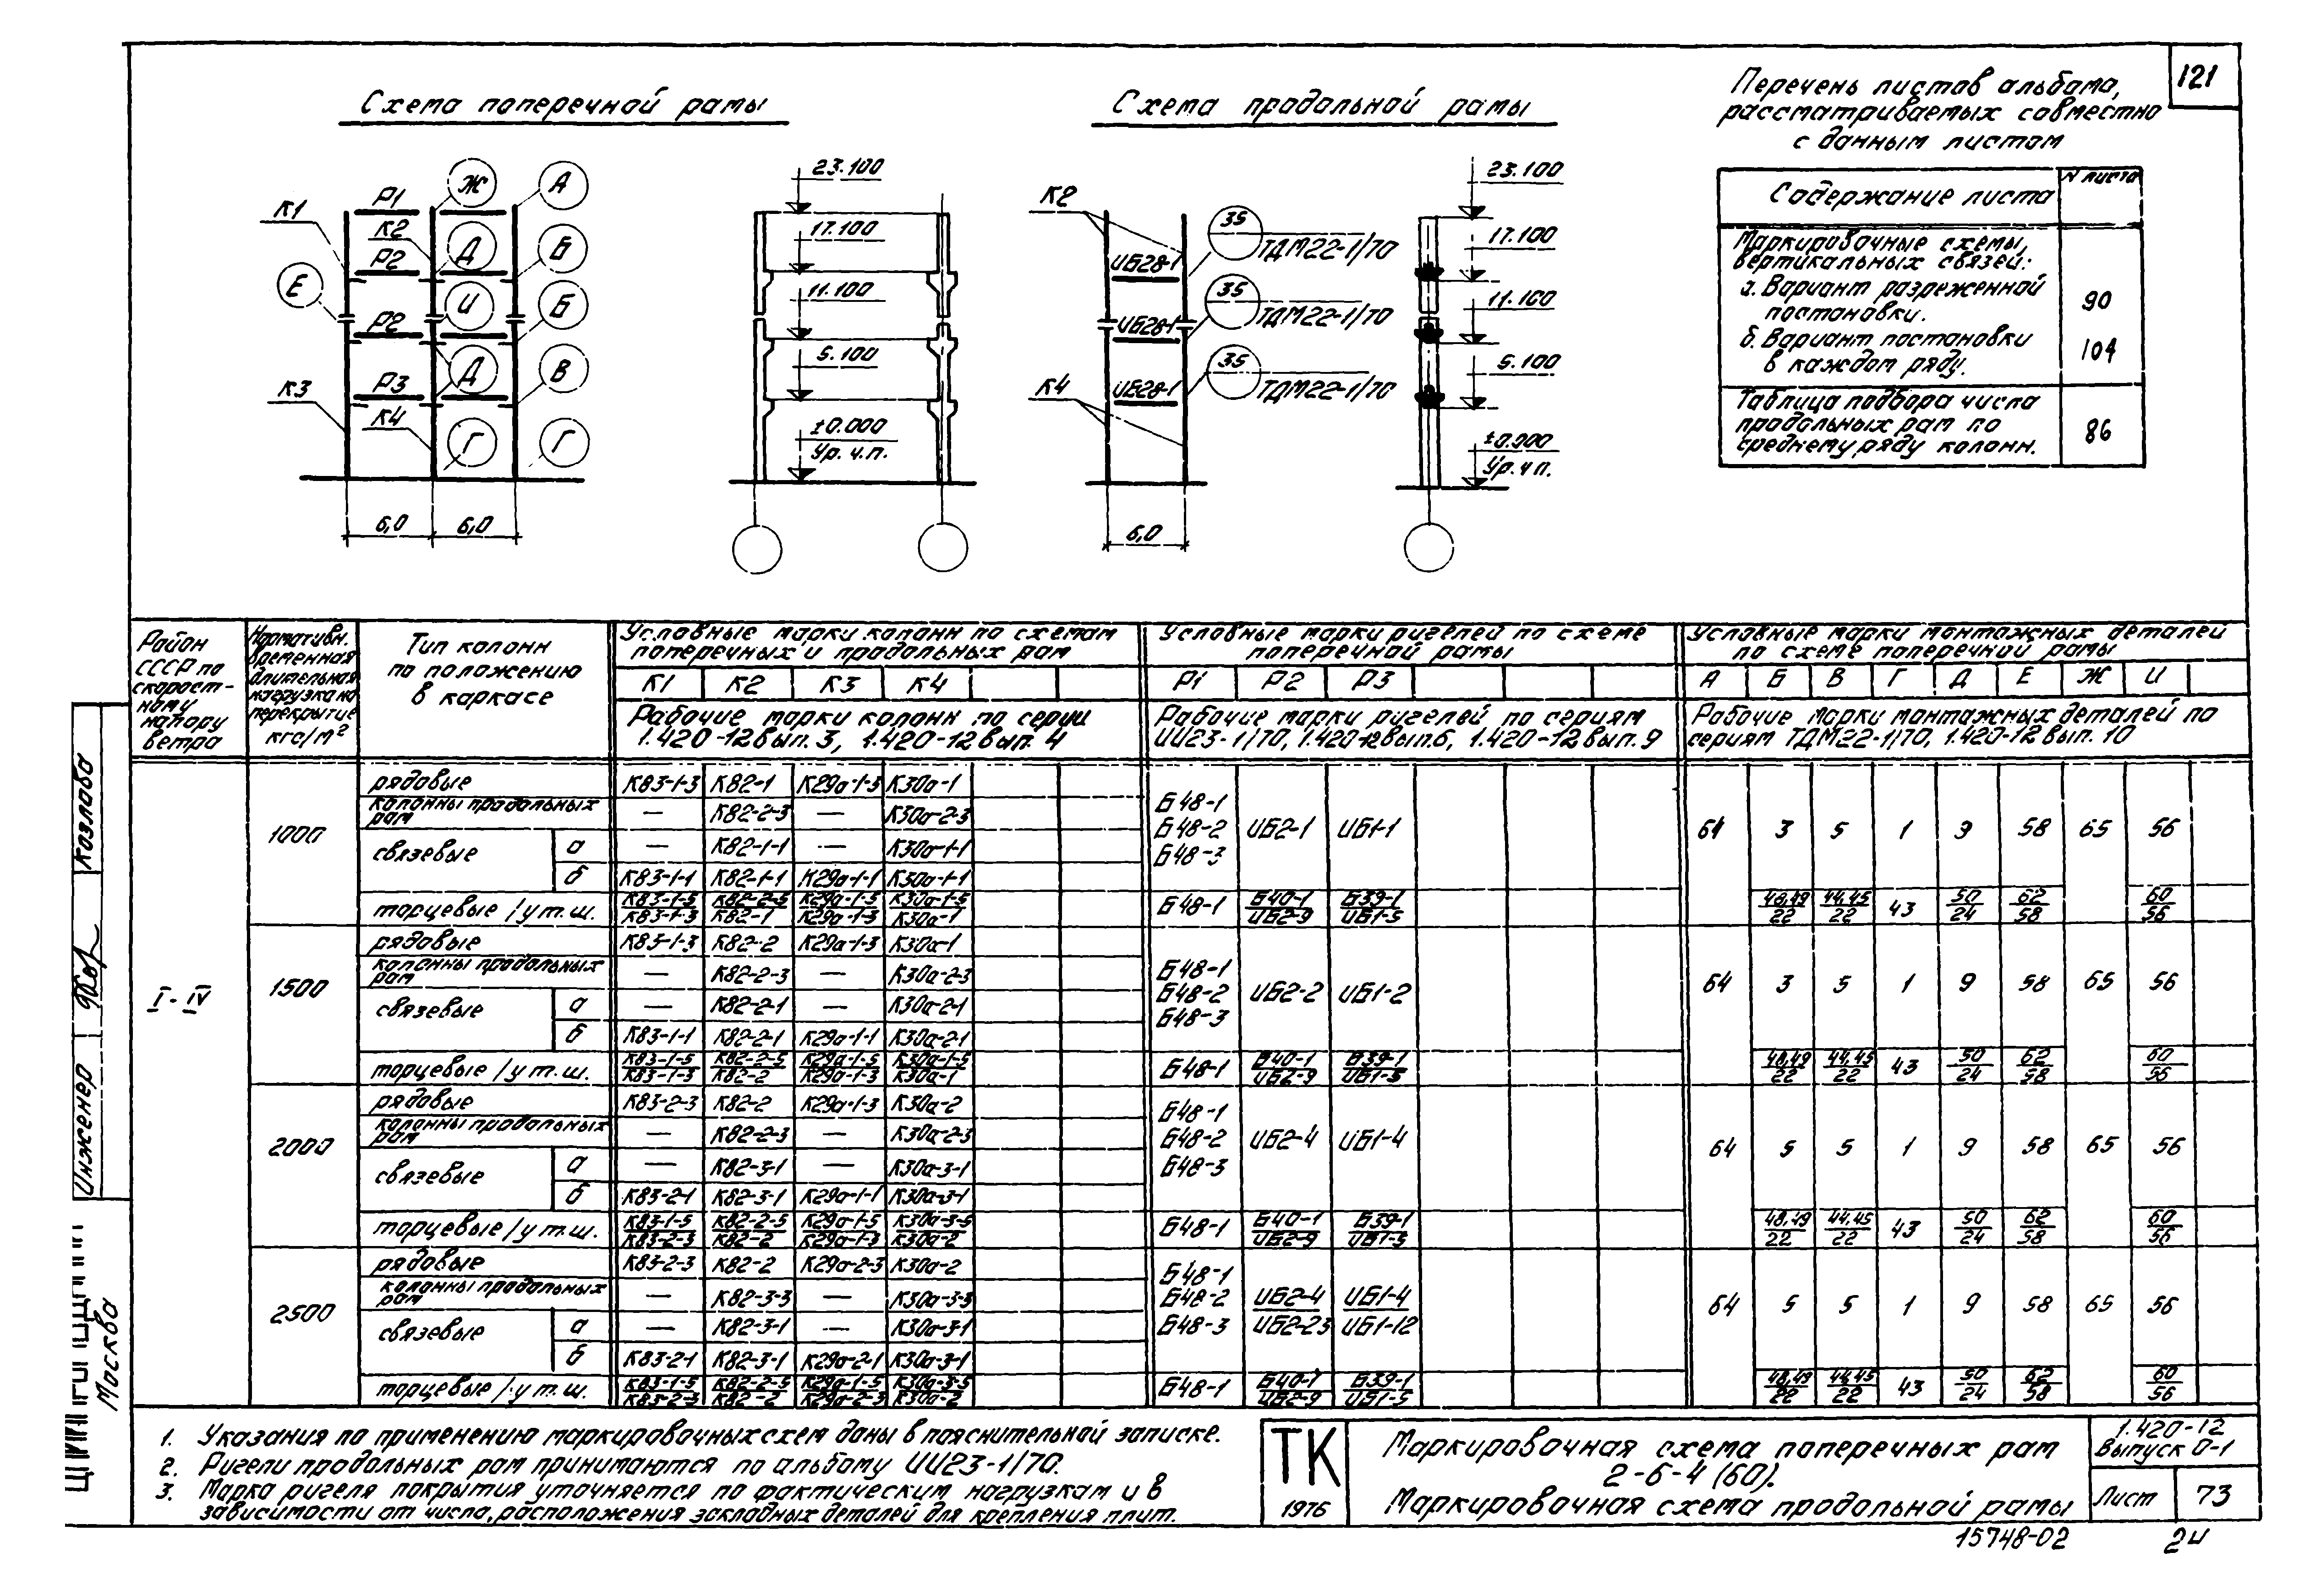 121
Схема поперечной рамы
Схема продольной рамы
Перечень листов альбома,
рассматриваемых совместно
с данным листом
Содержание листа
N листа
Маркировочные схемы,
вертикальных связей:
а. Вариант разреженной
постановки.
90
б. Вариант постановки
в каждом ряду.
104
Таблица подбора числа
продольных рам по
среднему ряду колонн.
86
К1 Р1 Ж А
К2 Д Б
Р2
Е Р2 И Б
К3 Р3 Д В
К4 Г Г
6,0 6,0
23.100
17.100
11.100
5.100
±0.000
Ур. ч.п.
К2
ИБ28-1 35 ТДМ22-1/70
ИБ28-1 35 ТДМ22-1/70
К4 ИБ28-1 35 ТДМ22-1/70
6,0
23.100
17.100
11.100
5.100
±0.000
Ур. ч п.
Район
СССР по
скорост-
ному
напору
ветра
Нормативн.
временная
длительная
нагрузка на
перекрытие
кгс/м²
Тип колонн
по положению
в каркасе
Условные марки колонн по схемам
поперечных и продольных рам
К1 К2 К3 К4
Рабочие марки колонн по серии
1.420-12 вып. 3, 1.420-12 вып. 4
Условные марки ригелей по схеме
поперечной рамы
Р1 Р2 Р3
Рабочие марки ригелей по сериям
ИИ23-1/70, 1.420-12 вып. 6, 1.420-12 вып. 9
Условные марки монтажных деталей
по схеме поперечной рамы
А Б В Г Д Е Ж И
Рабочие марки монтажных деталей по
сериям ТДМ22-1/70, 1.420-12 вып. 10
I-IV
1000
рядовые К83-1-3 К82-1 К29а-1-3 К30а-1
колонны продольных
рам — К82-2-3 — К30а-2-3
связевые а — К82-1-1 — К30а-1-1
б К83-1-1 К82-1-1 К29а-1-1 К30а-1-1
Б48-1
Б48-2 ИБ2-1 ИБ1-1
Б48-3
64 3 5 1 9 58 65 56
торцевые / у т.ш. К83-1-5 К82-2-5 К29а-1-5 К30а-1-5
К83-1-3 К82-1 К29а-1-3 К30а-1
Б48-1 Б40-1 Б39-1
ИБ2-9 ИБ1-5
48,49 44,45 43 50 62 60
22 22 24 58 56
1500
рядовые К83-1-3 К82-2 К29а-1-3 К30а-1
колонны продольных
рам — К82-2-3 — К30а-2-3
связевые а — К82-2-1 — К30а-2-1
б К83-1-1 К82-2-1 К29а-1-1 К30а-2-1
Б48-1
Б48-2 ИБ2-2 ИБ1-2
Б48-3
64 3 5 1 9 58 65 56
торцевые / у т.ш. К83-1-5 К82-2-5 К29а-1-5 К30а-1-5
К83-1-3 К82-2 К29а-1-3 К30а-1
Б48-1 Б40-1 Б39-1
ИБ2-9 ИБ1-5
48,49 44,45 43 50 62 60
22 22 24 58 56
2000
рядовые К83-2-3 К82-2 К29а-1-3 К30а-2
колонны продольных
рам — К82-2-3 — К30а-2-3
связевые а — К82-3-1 — К30а-3-1
б К83-2-1 К82-3-1 К29а-1-1 К30а-3-1
Б48-1
Б48-2 ИБ2-4 ИБ1-4
Б48-3
64 5 5 1 9 58 65 56
торцевые / у т.ш. К83-1-5 К82-2-5 К29а-1-5 К30а-3-5
К83-2-3 К82-2 К29а-1-3 К30а-2
Б48-1 Б40-1 Б39-1
ИБ2-9 ИБ1-5
48,49 44,45 43 50 62 60
22 22 24 58 56
2500
рядовые К83-2-3 К82-2 К29а-2-3 К30а-2
колонны продольных
рам — К82-3-3 — К30а-3-3
связевые а — К82-3-1 — К30а-3-1
б К83-2-1 К82-3-1 К29а-2-1 К30а-3-1
Б48-1
Б48-2 ИБ2-4 ИБ1-4
Б48-3 ИБ2-23 ИБ1-12
64 5 5 1 9 58 65 56
торцевые / у т.ш. К83-1-5 К82-2-5 К29а-1-5 К30а-3-5
К83-2-3 К82-2 К29а-2-3 К30а-2
Б48-1 Б40-1 Б39-1
ИБ2-9 ИБ1-5
48,49 44,45 43 50 62 60
22 22 24 58 56
1. Указания по применению маркировочных схем даны в пояснительной записке.
2. Ригели продольных рам принимаются по альбому ИИ23-1/70.
3. Марка ригеля покрытия уточняется по фактическим нагрузкам и в
зависимости от числа, расположения закладных деталей для крепления плит.
ТК
1976
Маркировочная схема поперечных рам
2-6-4 (60).
Маркировочная схема продольной рамы
1.420-12
Выпуск 0-1
Лист 73
15748-02
Инженер
Козлова
Москва